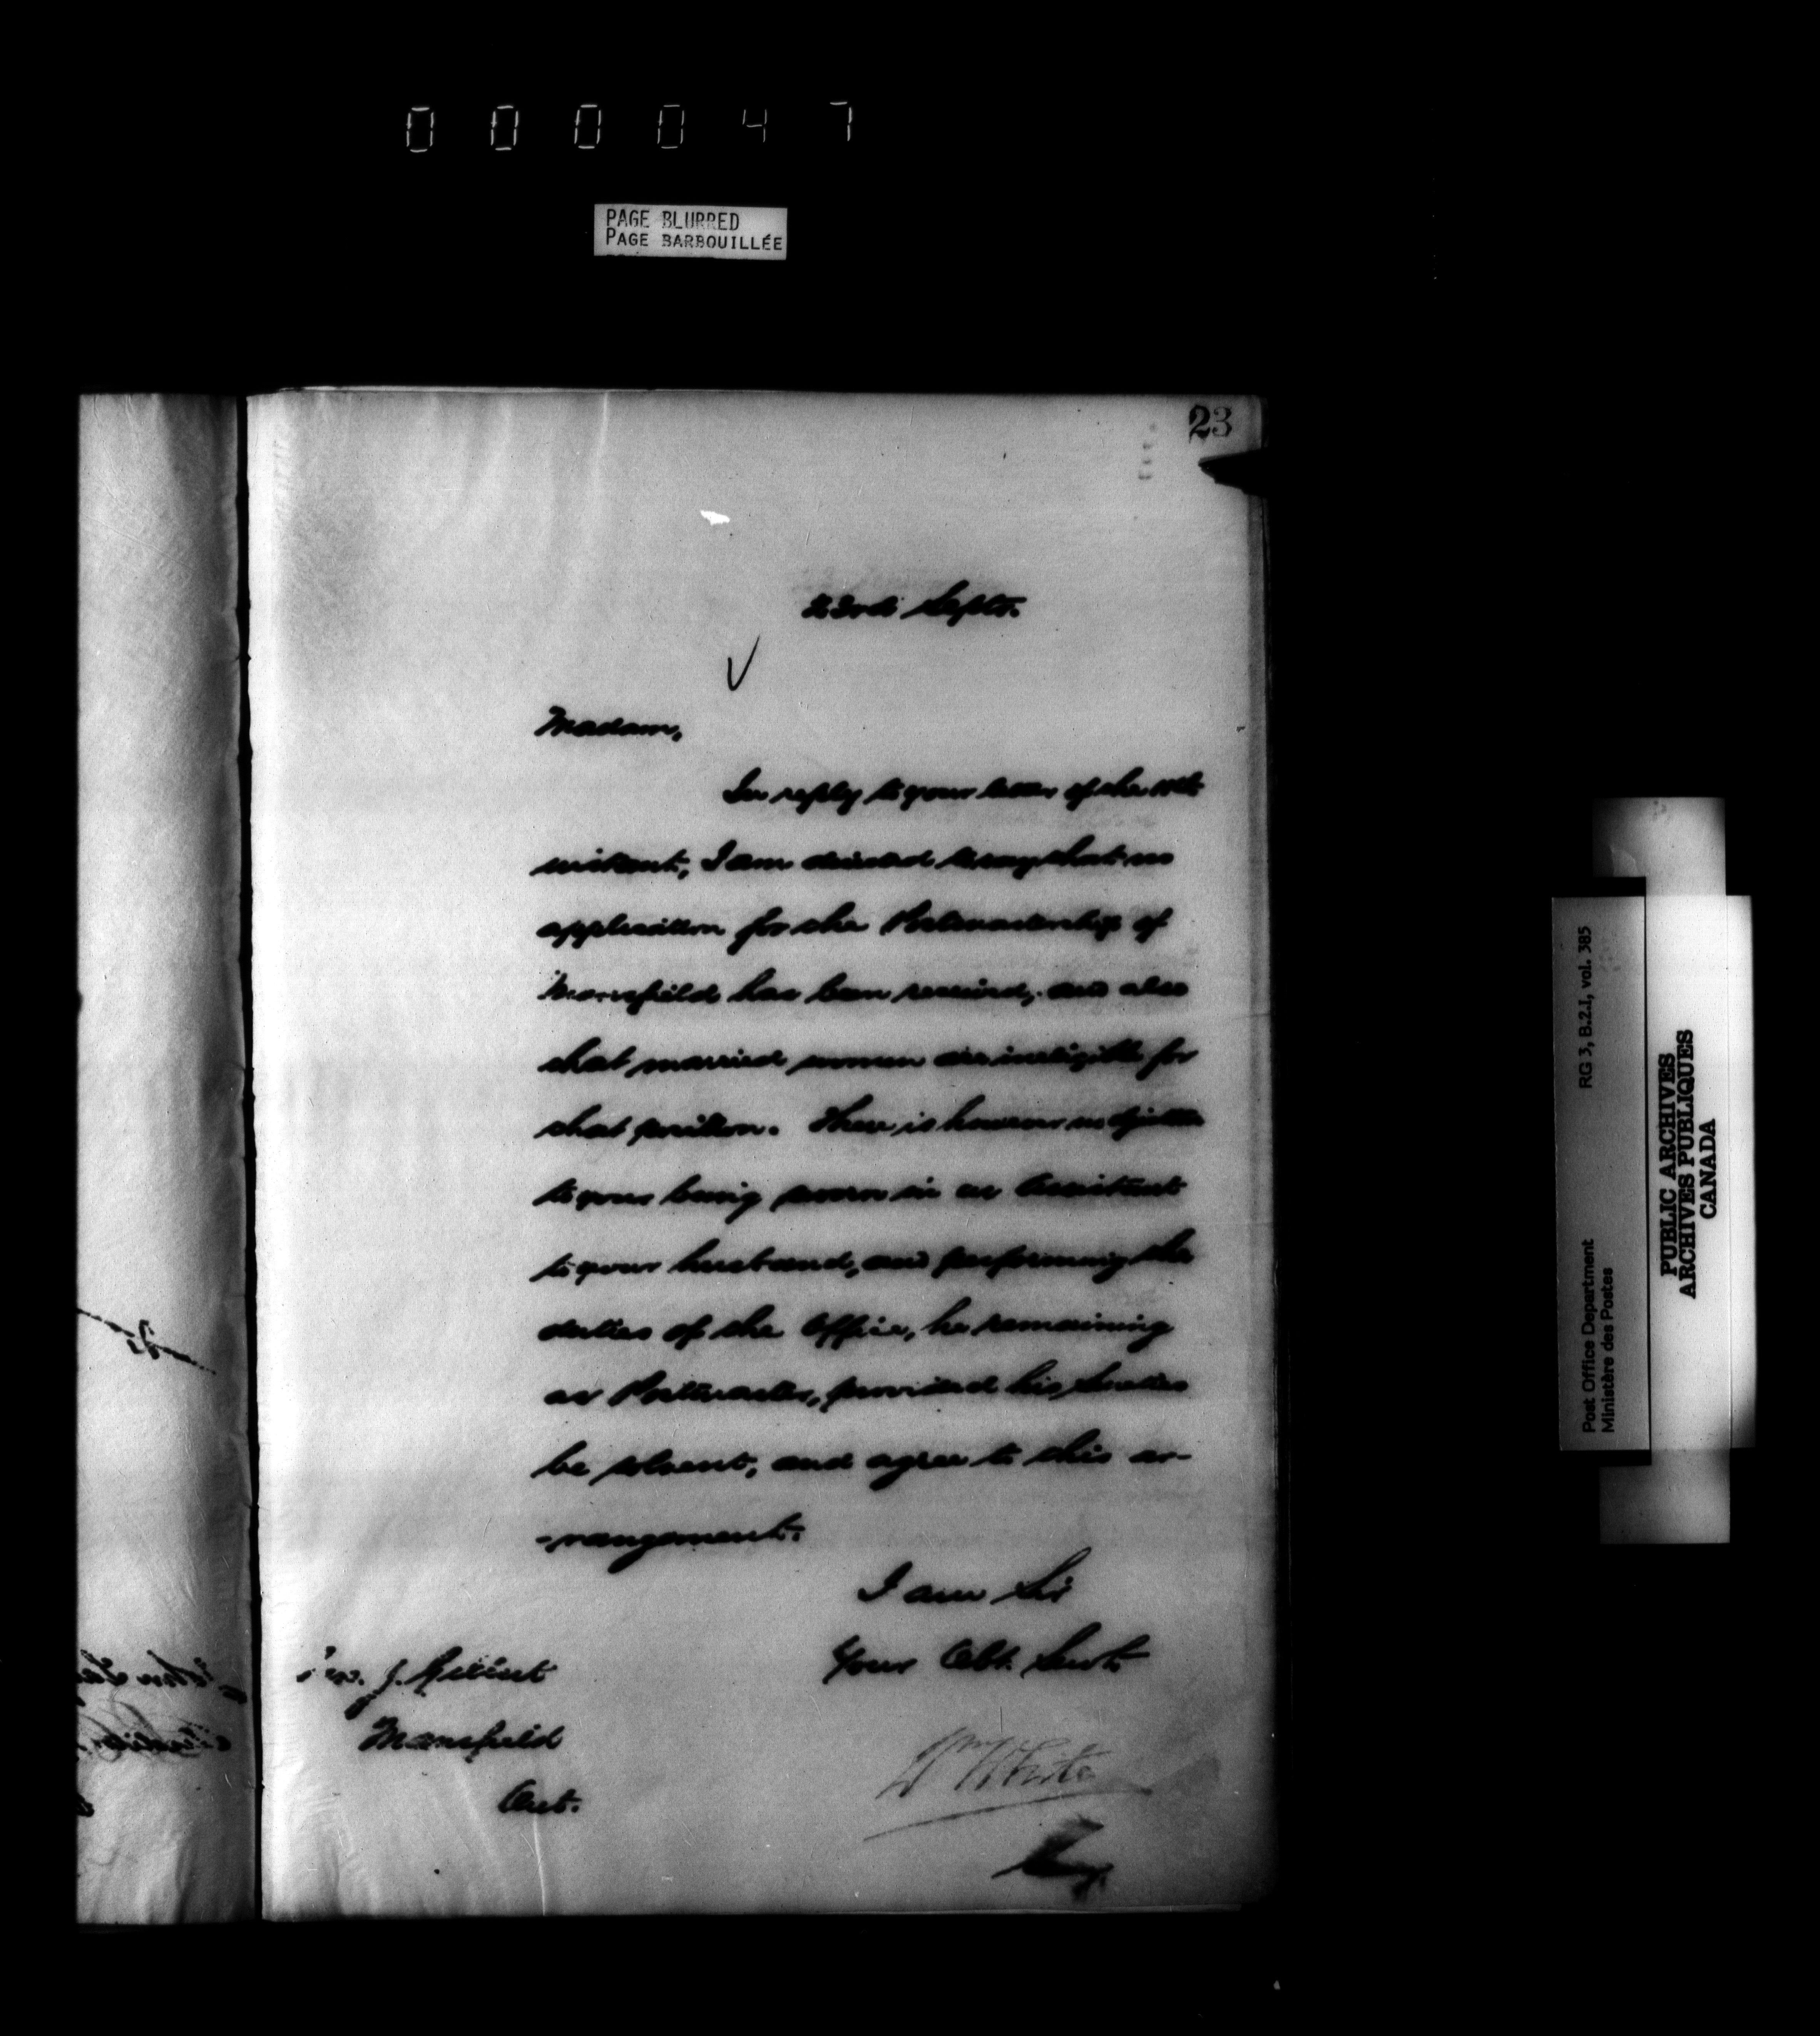 000047
PAGE BLURRED
PAGE BARBOUILLÉE
23
23rd Septr.
Madam,
In reply to your letter of the
instant, I am directed to say that no
application for the Postmastership of
Mansfield has been received, and also
that married women are ineligible for
that position. There is however no objection
to your being sworn in as Assistant
to your husband, and performing the
duties of the Office, he remaining
as Postmaster, provided his Sureties
be solvent, and agree to this ar-
-rangement.
I am Sir
Your Obt. Servt.
J.
Mansfield
Ont.
Wm White
Secy.
RG 3, B.2.I, vol. 385
Post Office Department
Ministère des Postes
PUBLIC ARCHIVES
ARCHIVES PUBLIQUES
CANADA